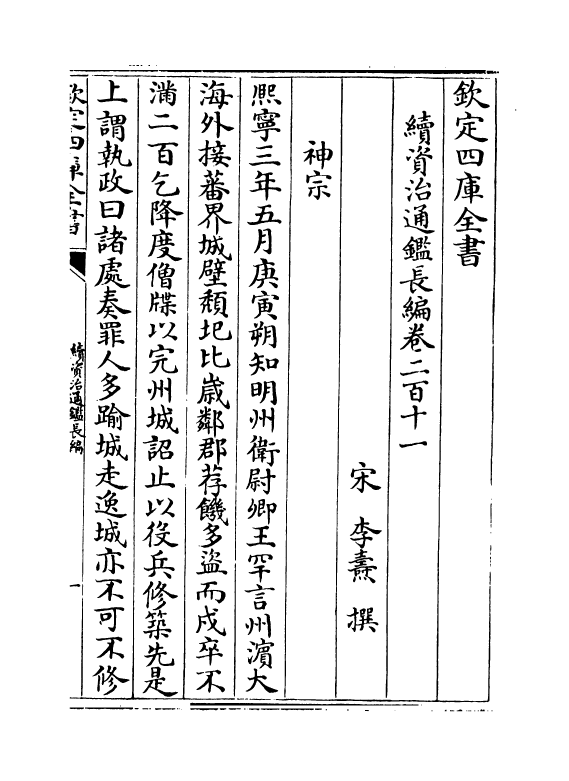 欽定四庫全書
續資治通鑑長編卷二百十一
宋 李燾 撰
神宗
熙寧三年五月庚寅朔知明州衛尉卿王罕言州濵大
海外接蕃界城壁頽圯比嵗鄰郡荐饑多盜而戍卒不
滿二百乞降度僧牒以完州城詔止以役兵修築先是
上謂執政曰諸處奏罪人多踰城走逸城亦不可不修
欽定四庫全書
續資治通鑑長編
一